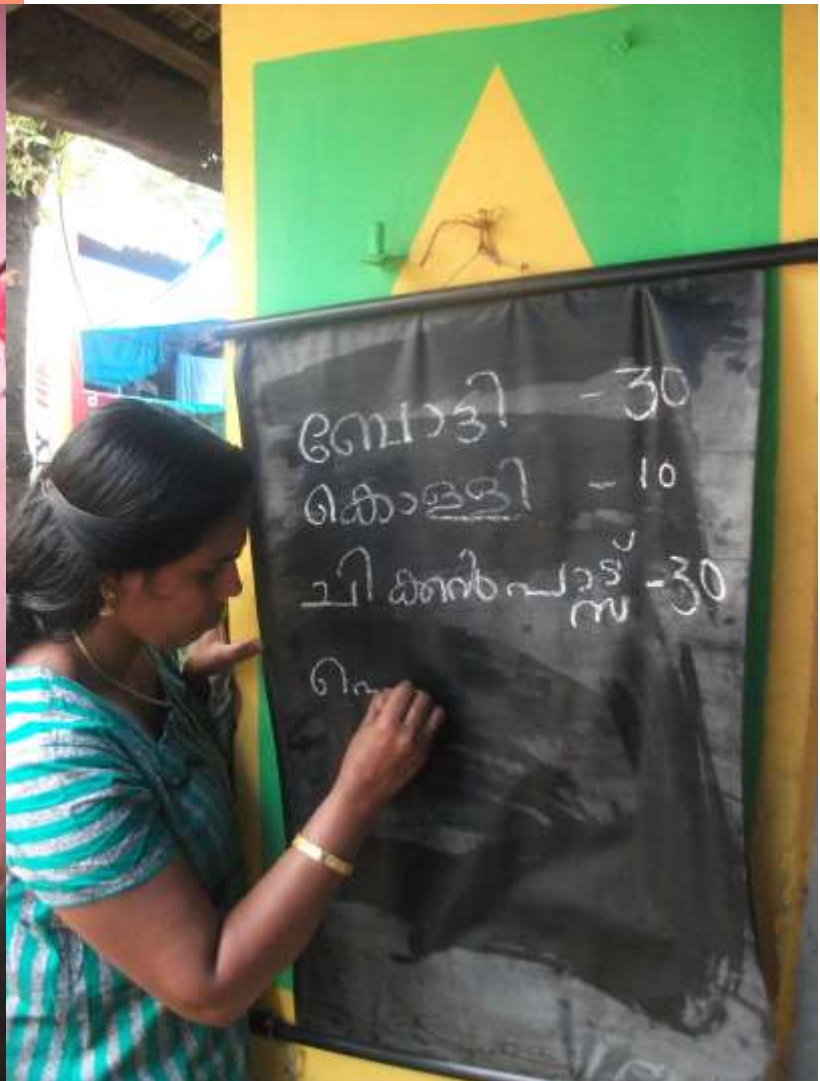 ബോട്ടി - 30
കൊള്ളി - 10
ചിക്കൻപാട്സ് - 30